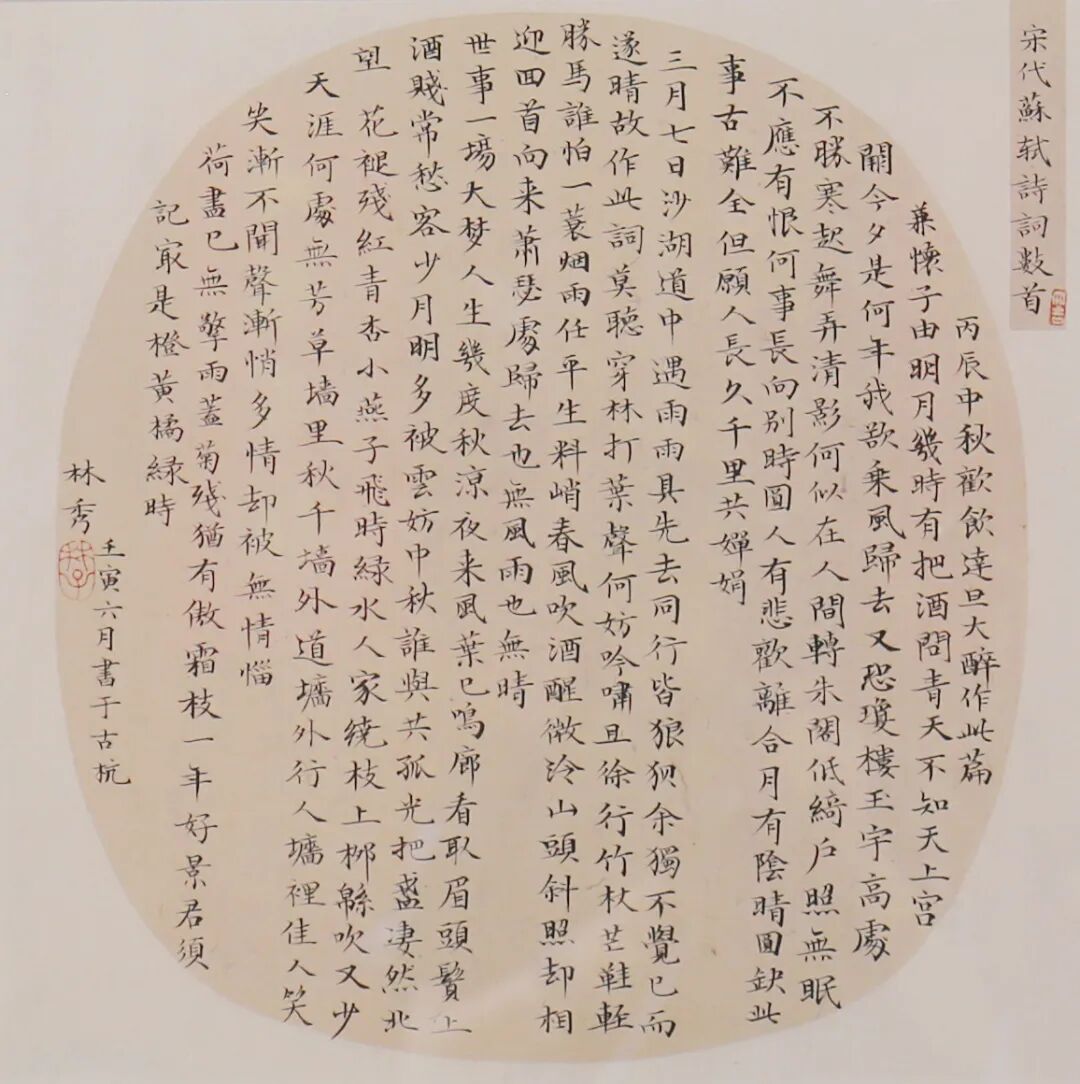 宋代蘇轼詩詞数首
丙辰中秋歡飲達旦大醉作此篇
兼懷子由明月幾時有把酒問青天不知天上宫
闕今夕是何年我欲乗風歸去又恐瓊樓玉宇高處
不勝寒起舞弄清影何似在人間轉朱閣低綺户照無眠
不應有恨何事長向別時圓人有悲歡離合月有陰晴圓缺此
事古難全但願人長久千里共嬋娟
三月七日沙湖道中遇雨雨具先去同行皆狼狽余獨不覺已而
遂晴故作此詞莫聴穿林打葉聲何妨吟嘯且徐行竹杖芒鞋輕
勝馬誰怕一蓑烟雨任平生料峭春風吹酒醒微冷山頭斜照却相
迎回首向来萧瑟處歸去也無風雨也無晴
世事一場大梦人生幾度秋涼夜来風葉已鳴廊看取眉頭鬢上
酒賤常愁客少月明多被雲妨中秋誰與共孤光把盞凄然北
望 花褪残紅青杏小燕子飛時緑水人家绕枝上柳緜吹又少
天涯何處無芳草墙里秋千墻外道墻外行人墻裡佳人笑
笑漸不聞聲漸悄多情却被無情惱
荷盡已無擎雨蓋菊残猶有傲霜枝一年好景君須
記最是橙黄橘緑時
林秀
壬寅六月書于古杭